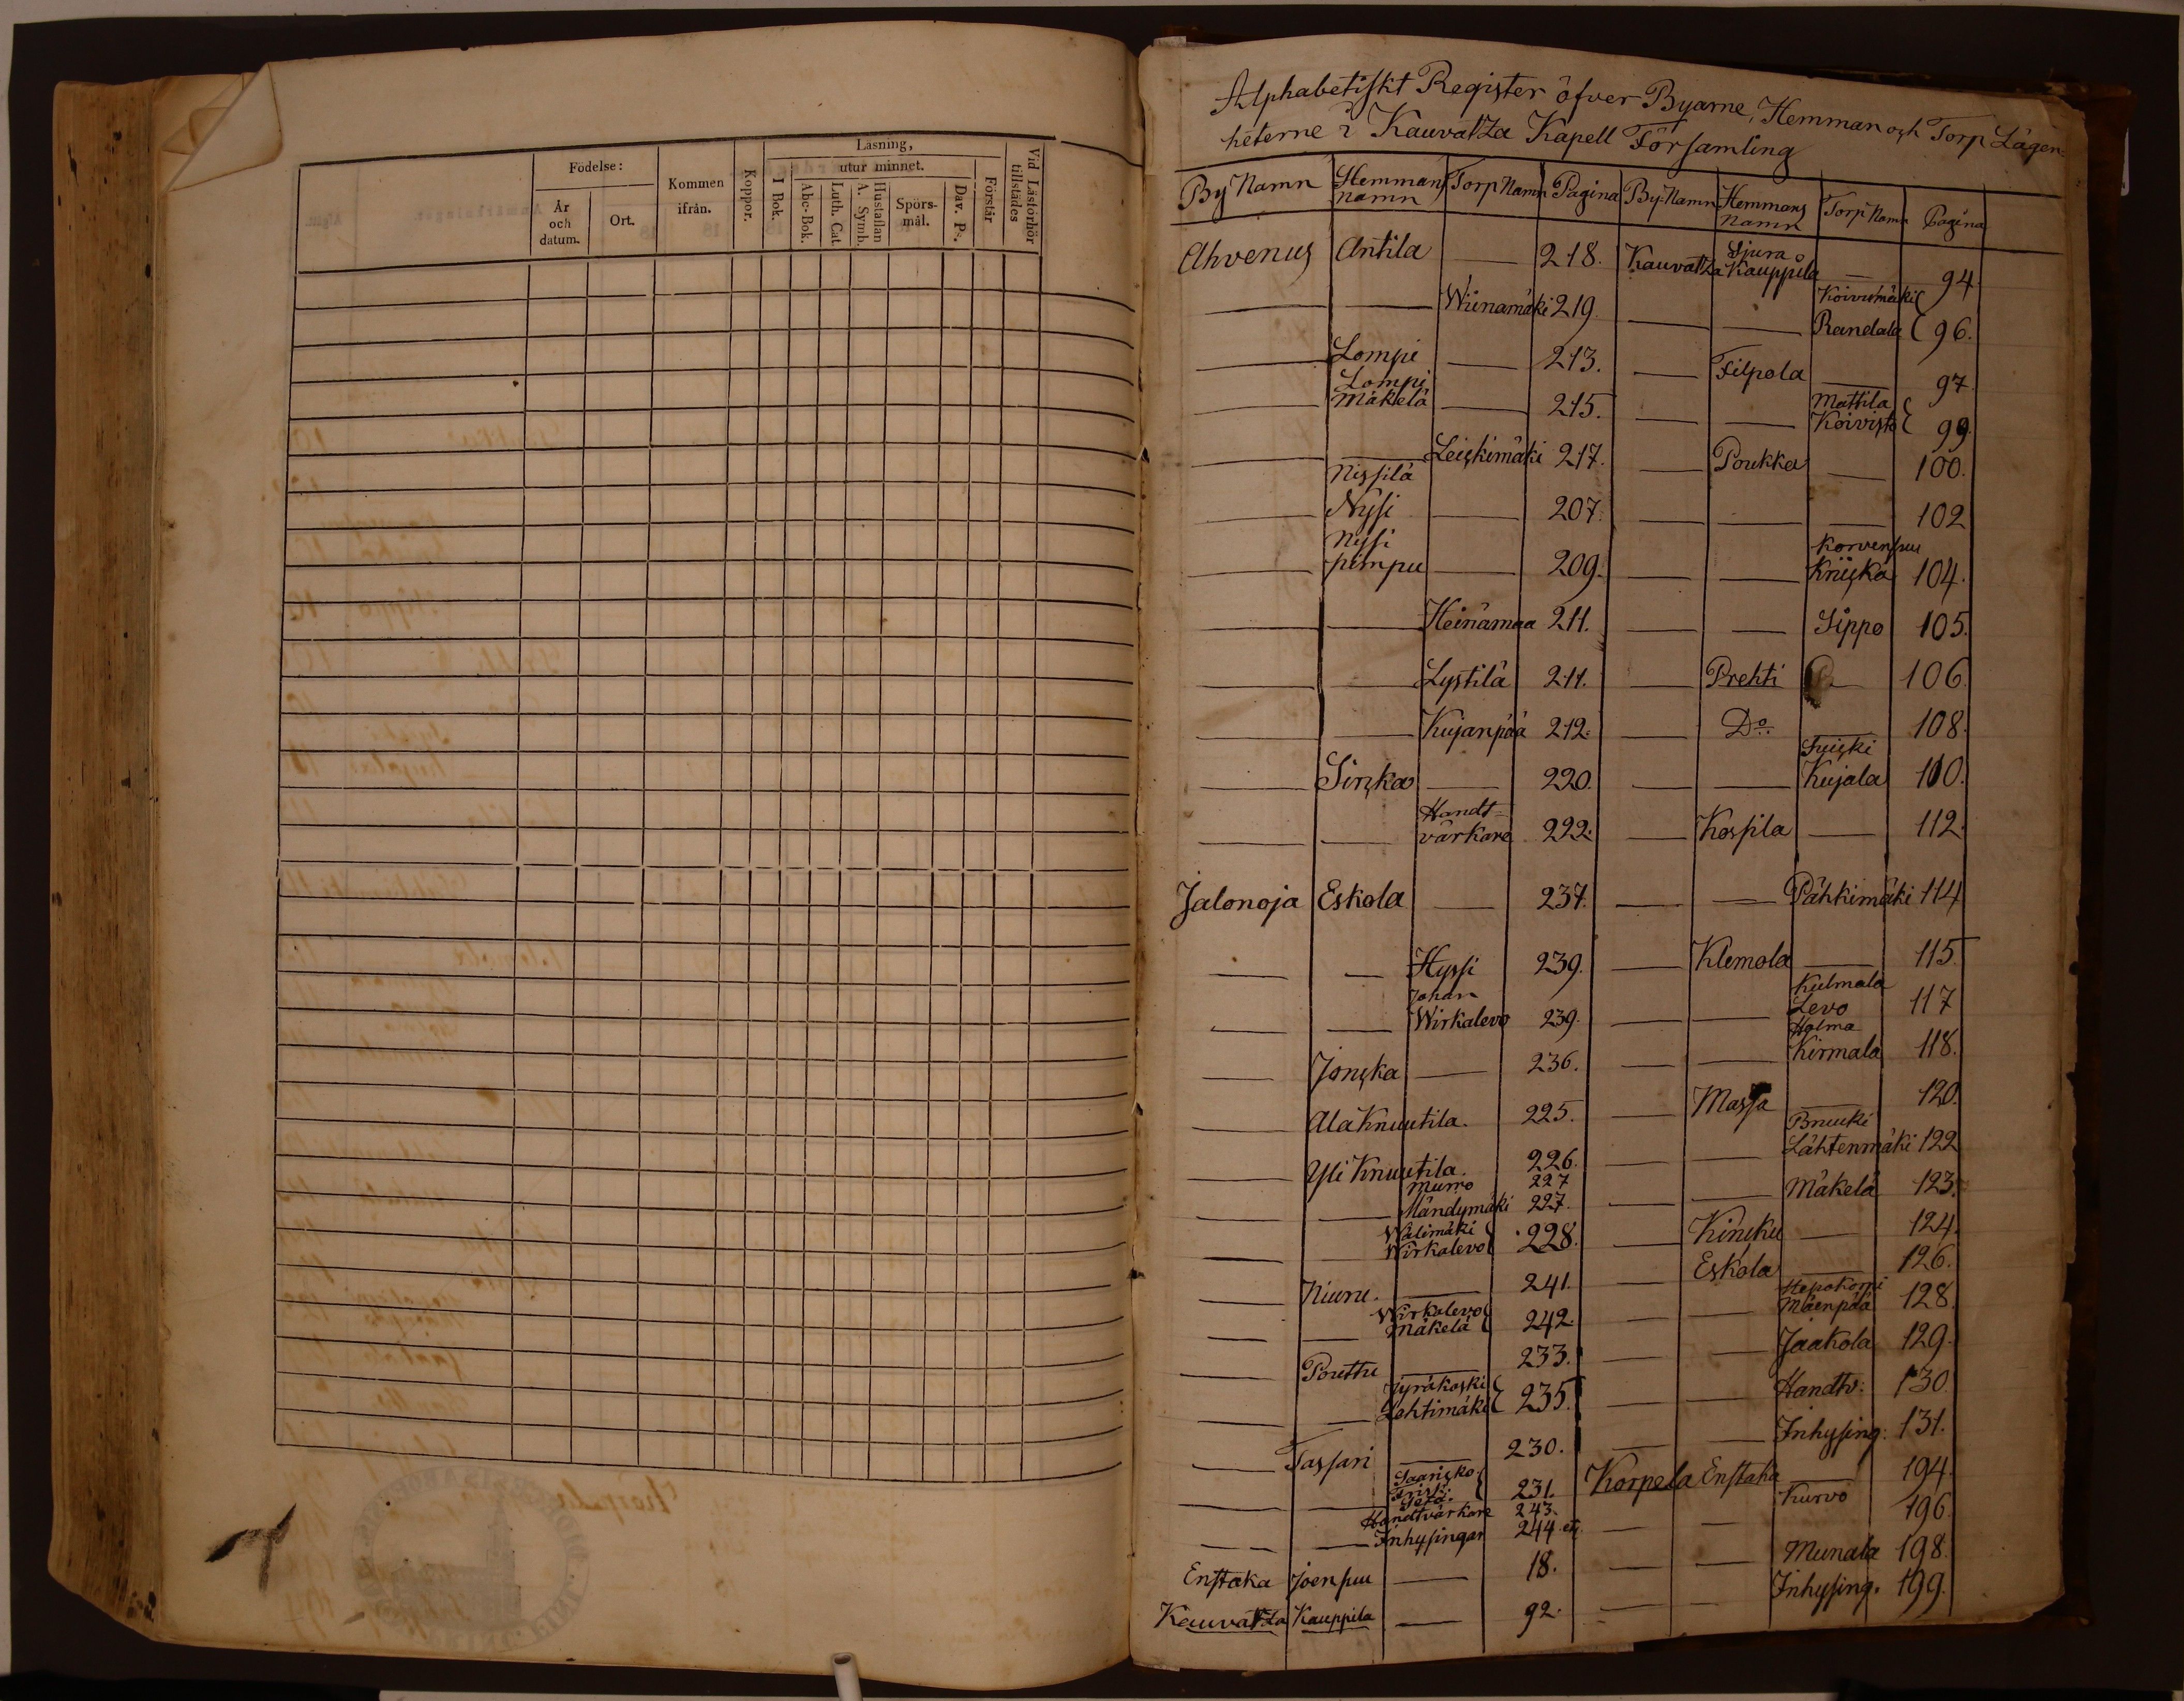 Födelse:
År och datum.
Ort.
Kommen ifrån.
Koppor.
Läsning,
I Bok.
utur minnet.
Abc-Bok.
Luth. Cat.
Hustaflan A. Symb.
Spörsmål.
Dav. Ps.
Förstår
Vid Läsförhör tillstädes
Alphabetiskt Register öfver Byarne, Hemman och Torp Lägen-
heterne i Kauvatza Kapell Församling
By Namn Hemmans namn Torp Namn Pagina
Ahvenus Antila — 218.
— — Wiinamäki 219.
— Lompi — 213.
— Lompi Mäkelä — 215.
— — Leiskimäki 217.
— Nissilä Nysi — 207.
— Nysi pimpu — 209.
— — Heinämaa 211.
— — Lystilä 211.
— — Kujanpää 212.
— Sinska — 220.
— — Handtvärkare 222.
Jalonoja Eskola — 237.
— — Hyssi 239.
— — Johan Wirkalevo 239.
— Jonska — 236.
— Ala Knuutila. 225.
— Yli Knuutila. 226.
Murro 227
— — Mändymäki 227.
— — Välimäki Wirkalevo 228.
— Niuru. — 241.
— — Wirkalevo Mäkelä 242.
— Pouttu — 233.
— — Jyräkoski Lehtimäki 235.
— Tassari — 230.
— — Saarisko 231.
Handtvärkare 243.
— — Inhysingar 244 etc
Enstaka Joensuu — 18.
Kauvatza Kauppila — 92.
By Namn Hemmans namn Torp Namn Pagina
Kauvatza Sjura Kauppila — 94.
— — Koivumäki Randala 96.
— Filpola — 97.
— — Mattila Koivisto 99.
— Poukka — 100.
— — — 102
— — Korvensuu Kriiska 104.
— — Sippo 105.
— Prehti — 106.
— Do. — 108.
— — Kujala 110.
— Kossila — 112.
— — Pähkimäki 114
— Klemola — 115.
— — Kulmala Levo 117
— — Holma Kirmala 118.
— Massa — 120.
— — Bruuki Lähtenmäki 122
— — Mäkelä 123.
— Kinsku — 124.
— Eskola — 126.
— — Hepokorpi Mäenpää 128.
— — Jaakola 129.
— — Handtv: 130.
— — Inhysing: 131.
Korpela Enstaka — 194.
— — Kurvo 196.
— — Munala 198.
— — Inhysing. 199.